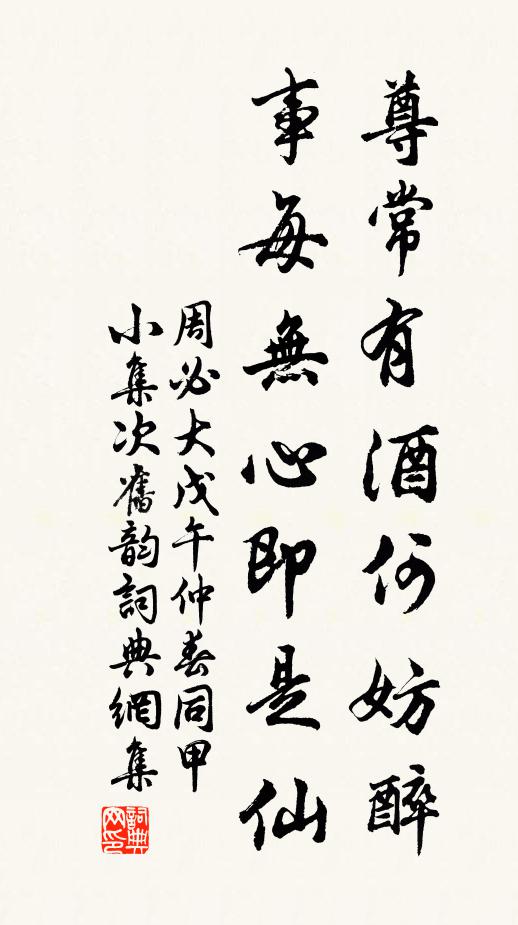 尊常有酒何妨醉
事每無心即是仙
周必大戊午仲春同甲
小集次舊韵詞典網集
詞典
网印